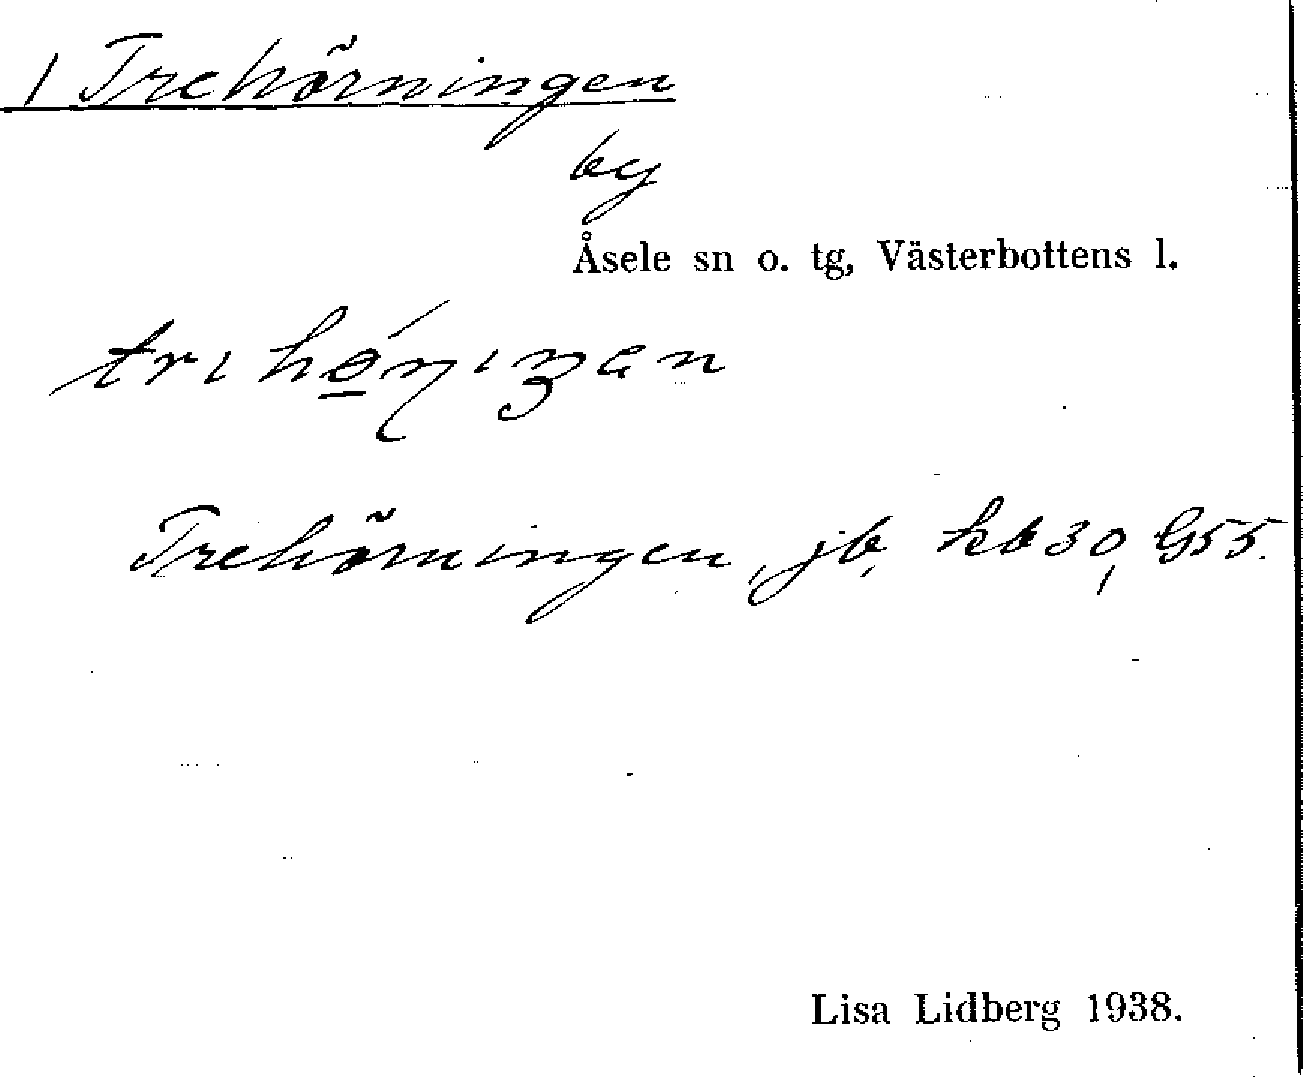 1 Trehörningen
by
Åsele sn o. tg, Västerbottens l.
trihö́ɳıŋɛn
Trehörningen, jb, kb 30, G55.
Lisa Lidberg 1938.